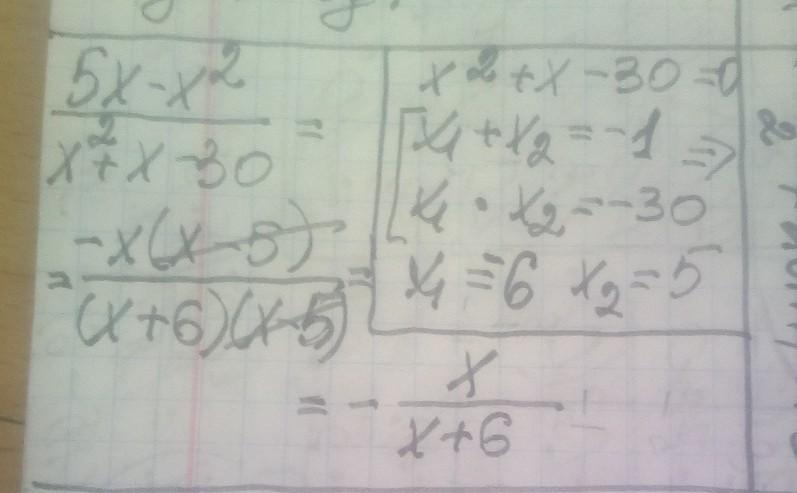 5x-x²
x²+x-30 =
= -x(x-5)
(x+6)(x-5) =
x²+x-30=0
x₁+x₂=-1 =>
x₁·x₂=-30
x₁=-6 x₂=5
= - x
x+6